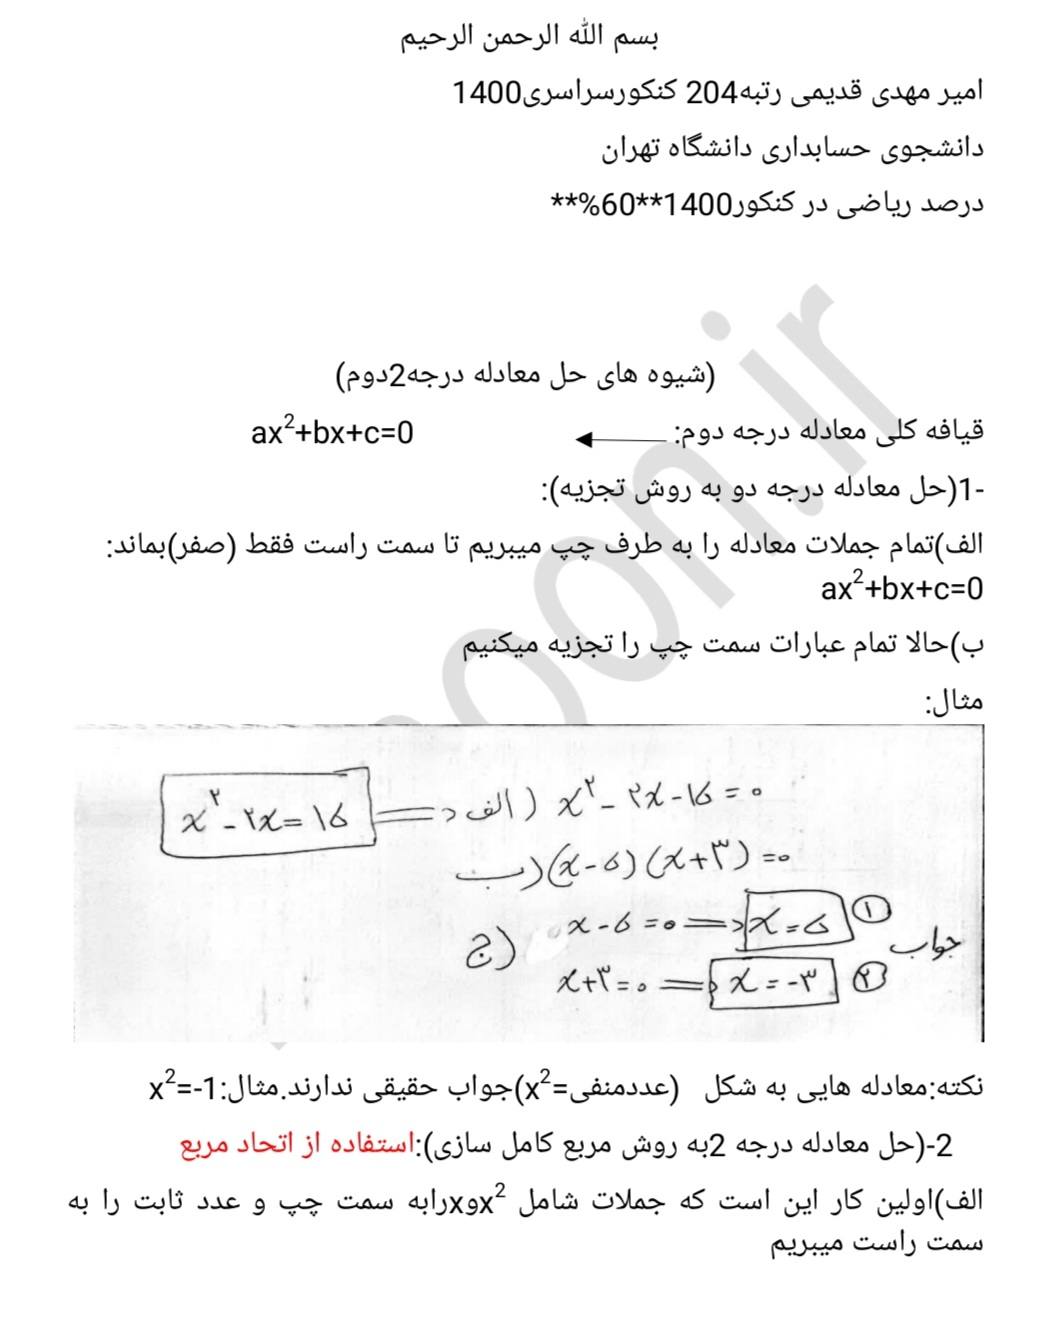 بسم الله الرحمن الرحیم
امیر مهدی قدیمی رتبه204 کنکورسراسری1400
دانشجوی حسابداری دانشگاه تهران
درصد ریاضی در کنکور1400**60%**
(شیوه های حل معادله درجه2دوم)
قیافه کلی معادله درجه دوم: ax²+bx+c=0
-1(حل معادله درجه دو به روش تجزیه):
الف)تمام جملات معادله را به طرف چپ میبریم تا سمت راست فقط (صفر)بماند:
ax²+bx+c=0
ب)حالا تمام عبارات سمت چپ را تجزیه میکنیم
مثال:
x²-۲x=۱۵ => الف) x²-۲x-۱۵=۰
ب) (x-۵)(x+۳)=۰
ج) x-۵=۰ => x=۵ ①
جواب
x+۳=۰ => x=-۳ ②
نکته:معادله هایی به شکل (عددمنفی=x²)جواب حقیقی ندارند.مثال:x²=-1
2-(حل معادله درجه 2به روش مربع کامل سازی):استفاده از اتحاد مربع
الف)اولین کار این است که جملات شامل x²وxرابه سمت چپ و عدد ثابت را به
سمت راست میبریم
oon.ir